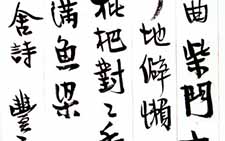 曲柴門
地僻懶
枇杷對〻
滿魚梁
舍詩 豐